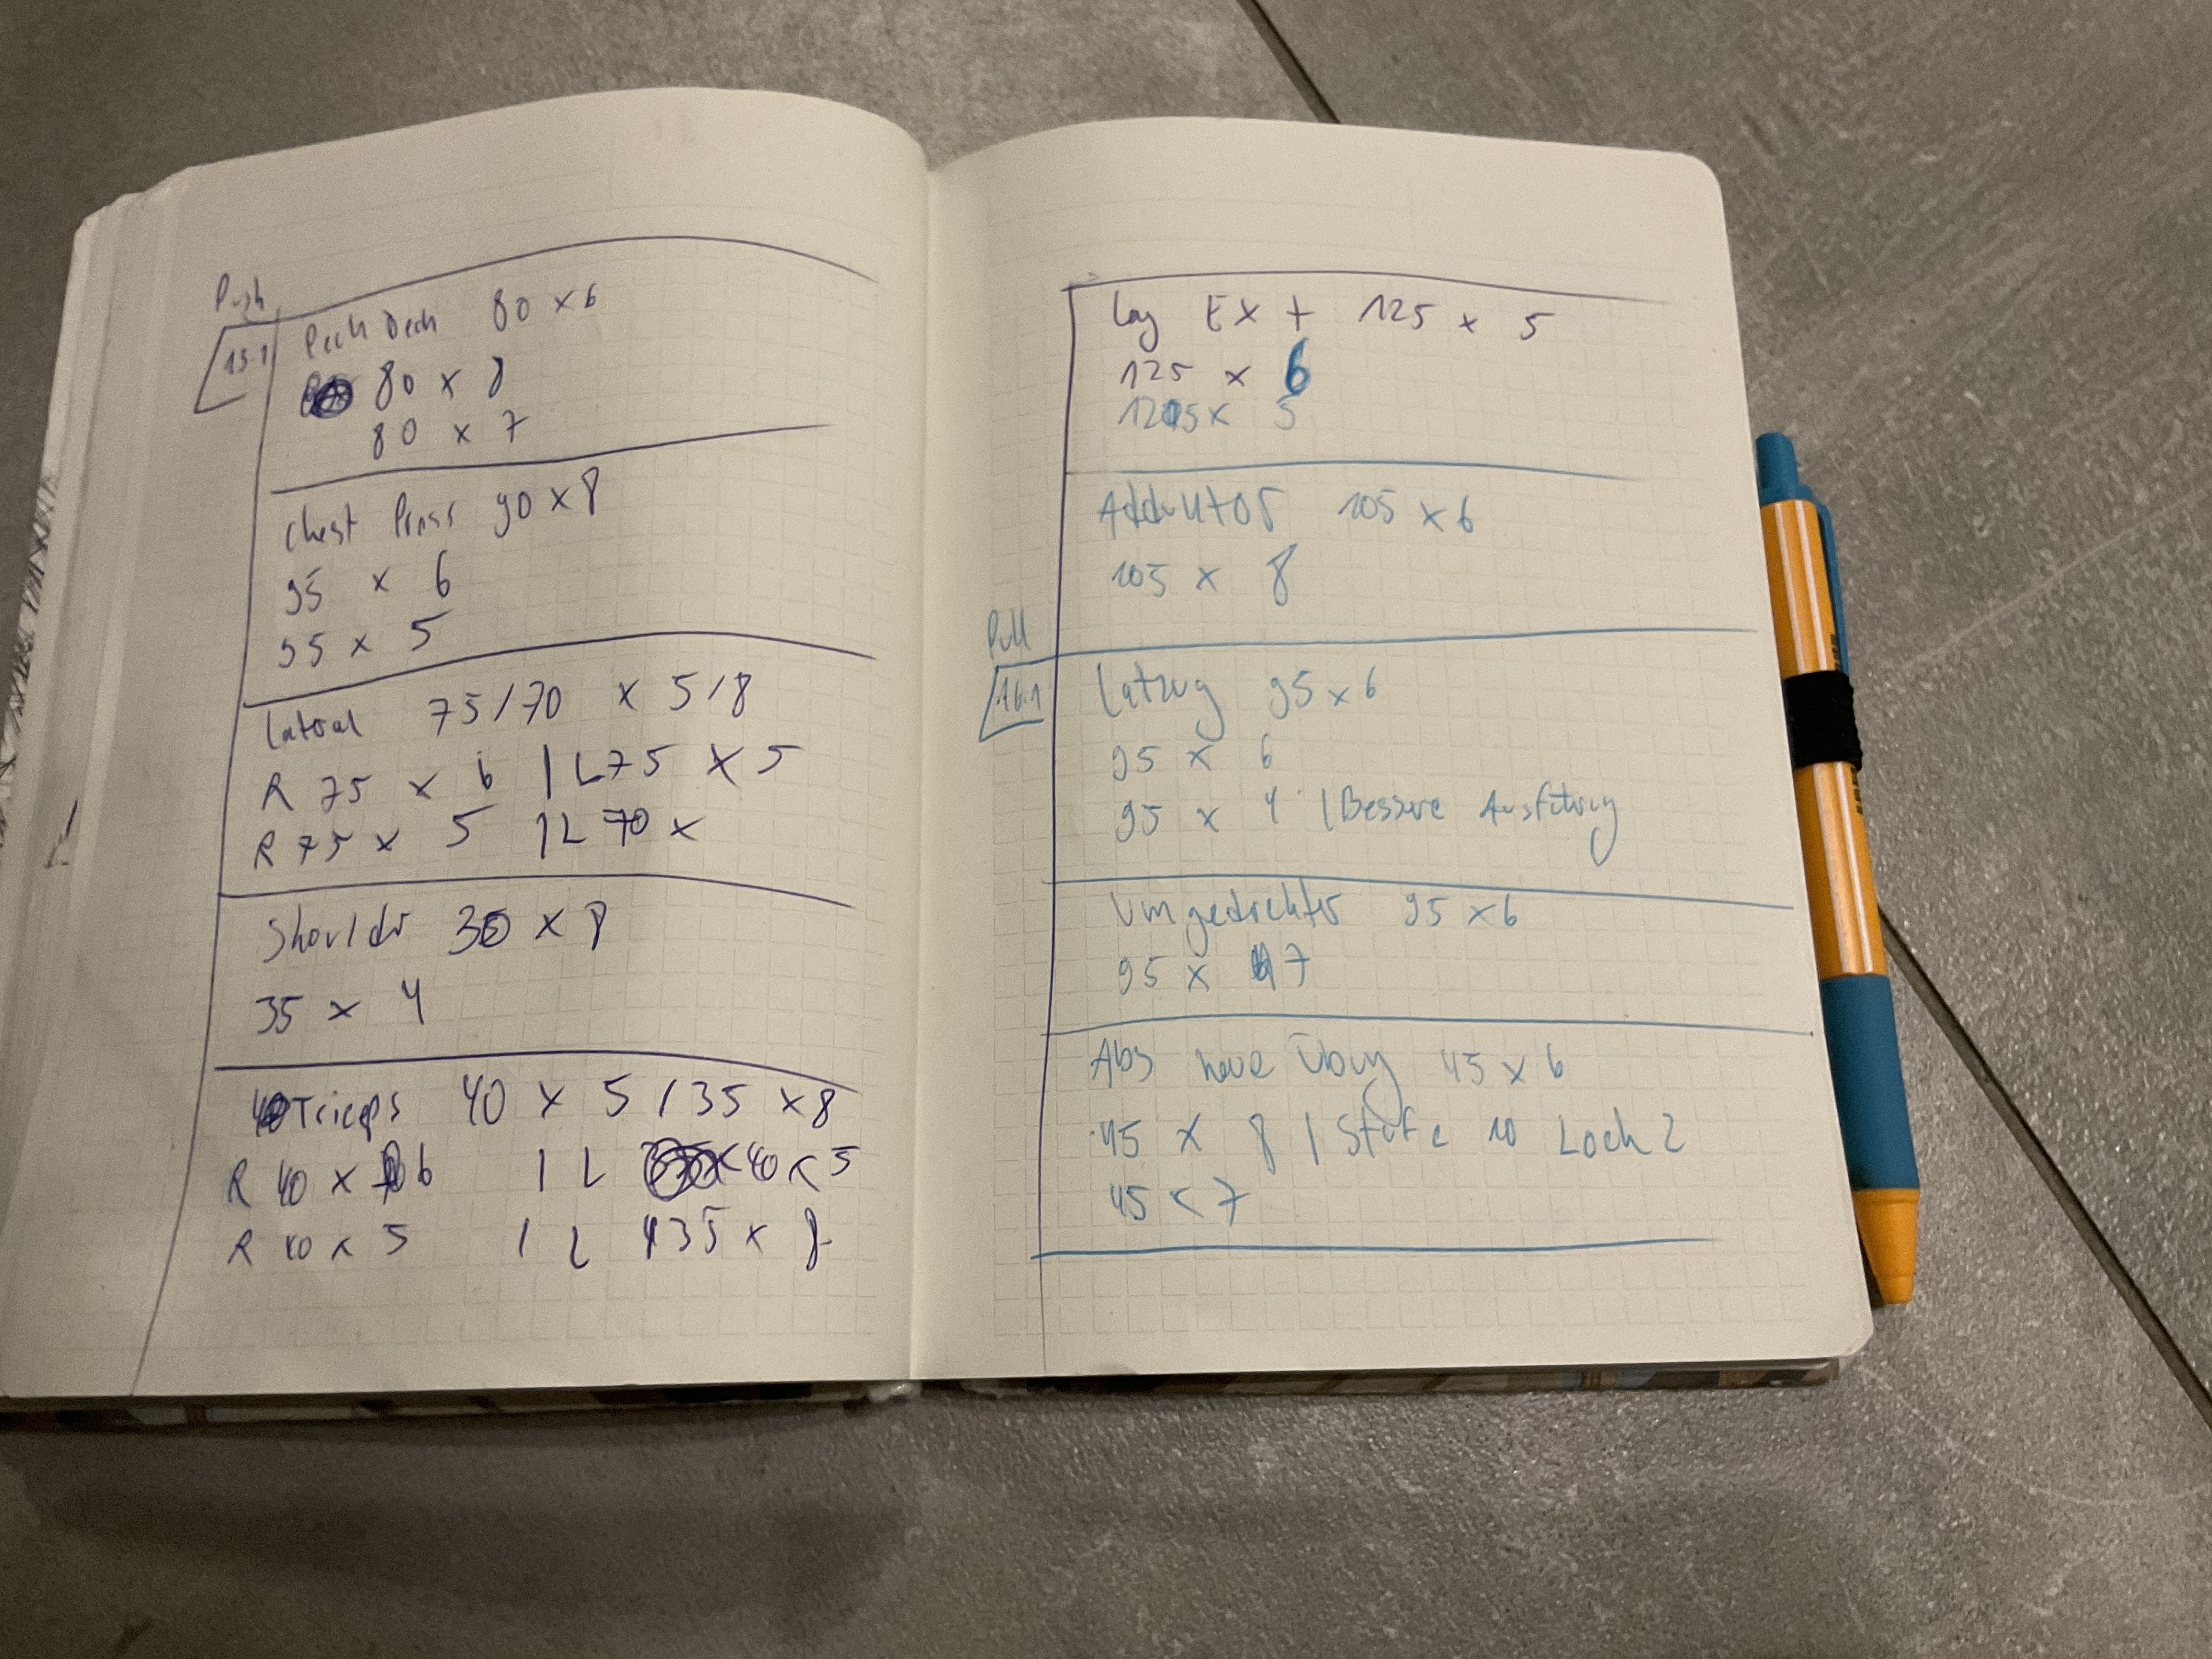 Push
13.1
Pech Dech 80 x 6
80 x 8
80 x 7
Chest Press 90 x 8
95 x 6
95 x 5
Lateral 75/70 x 5/8
R 75 x 6 | L 75 x 5
R 75 x 5 | L 70 x
Shoulder 30 x 8
35 x 4
Triceps 40 x 5 / 35 x 8
R 40 x 6 | L 40 x 5
R 40 x 5 | L 35 x 8
Leg Ext 125 x 5
125 x 6
125 x 5
Adduktor 105 x 6
105 x 8
Pull
16.1
Latzug 95 x 6
95 x 6
95 x 4 | Bessere Ausführung
Umgedrehter 95 x 6
95 x 7
Abs neue Übung 45 x 6
45 x 8 | Stufe 10 Loch 2
45 x 7